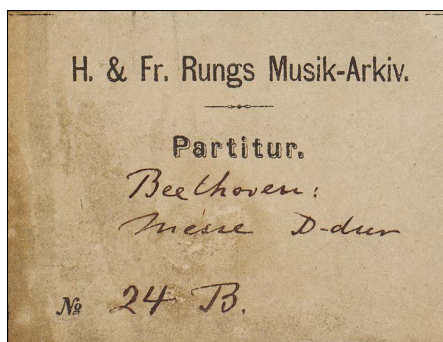 H. & Fr. Rungs Musik-Arkiv.
Partitur.
Beethoven:
Messe D-dur
№ 24 B.